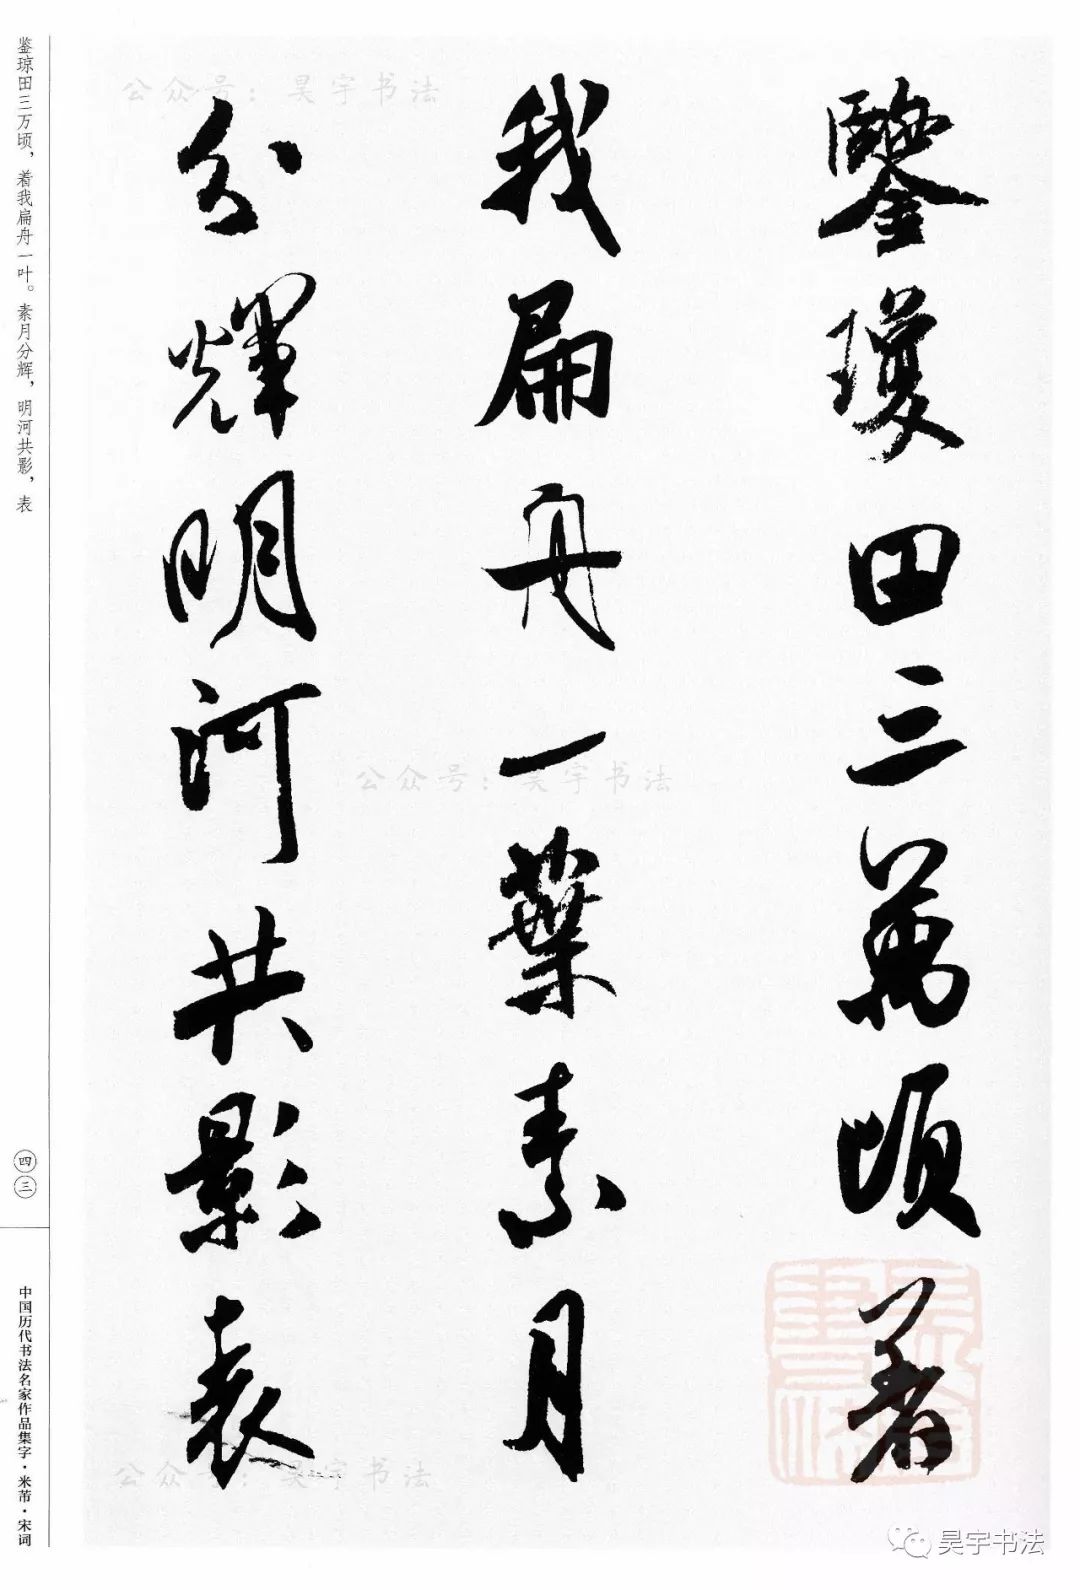 鑒瓊田三萬頃着
我扁舟一葉素月
分輝明河共影表
鉴琼田三万顷，着我扁舟一叶。素月分辉，明河共影，表
四三
中国历代书法名家作品集字·米芾·宋词
公众号：昊宇书法
公众号：昊宇书法
公众号：昊宇书法
昊宇书法